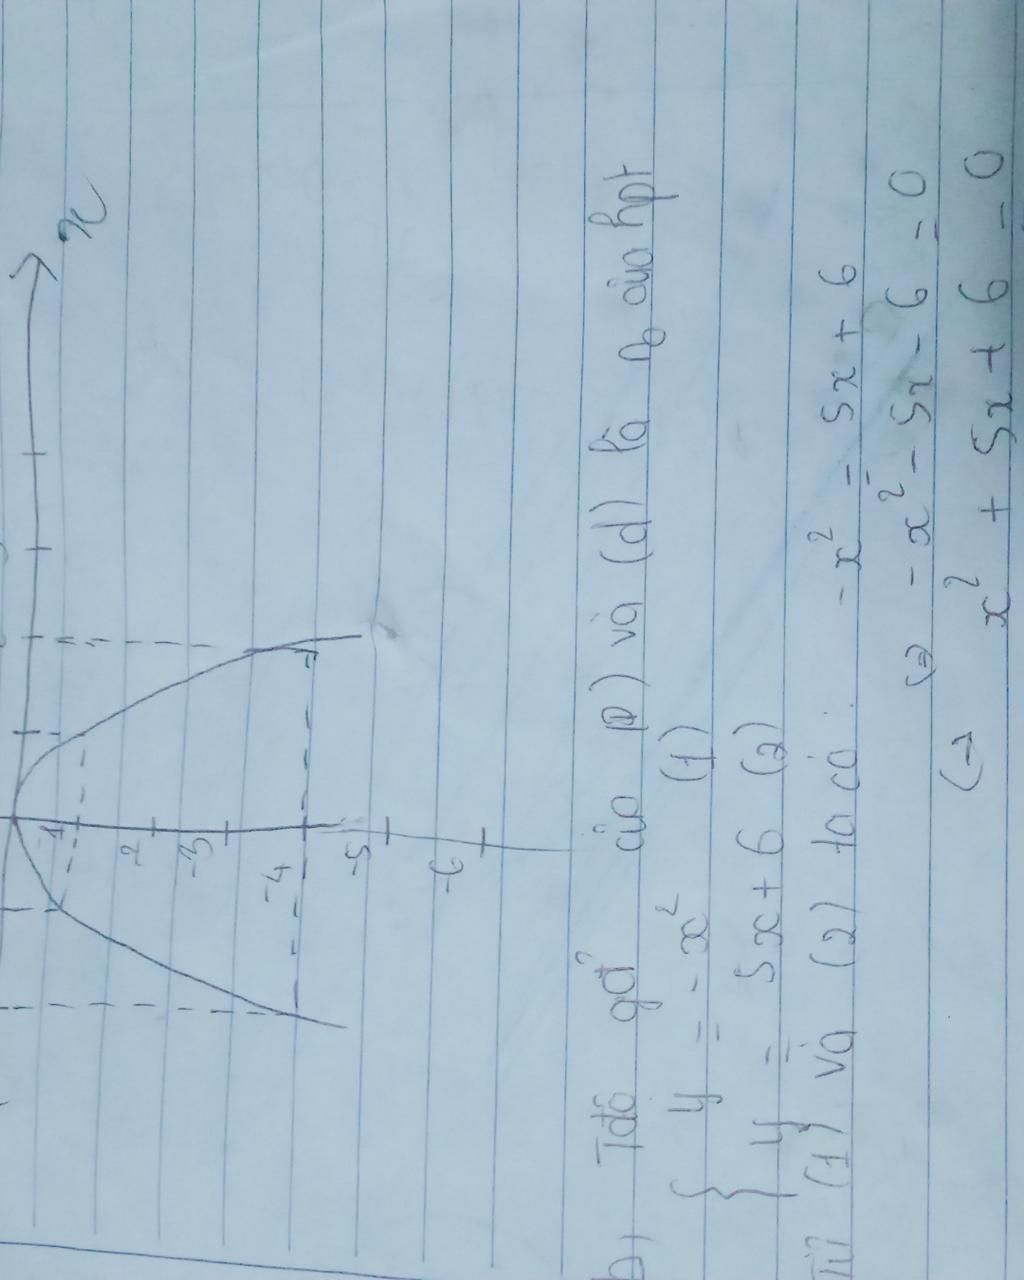 x
-1
-2
-3
-4
-5
-6
b, Tđô gđ của p) và (d) là no của hpt
{ y = -x² (1)
y = 5x + 6 (2)
Từ (1) và (2) ta có: -x² = 5x + 6
(=) -x² - 5x - 6 = 0
(-) x² + 5x + 6 = 0